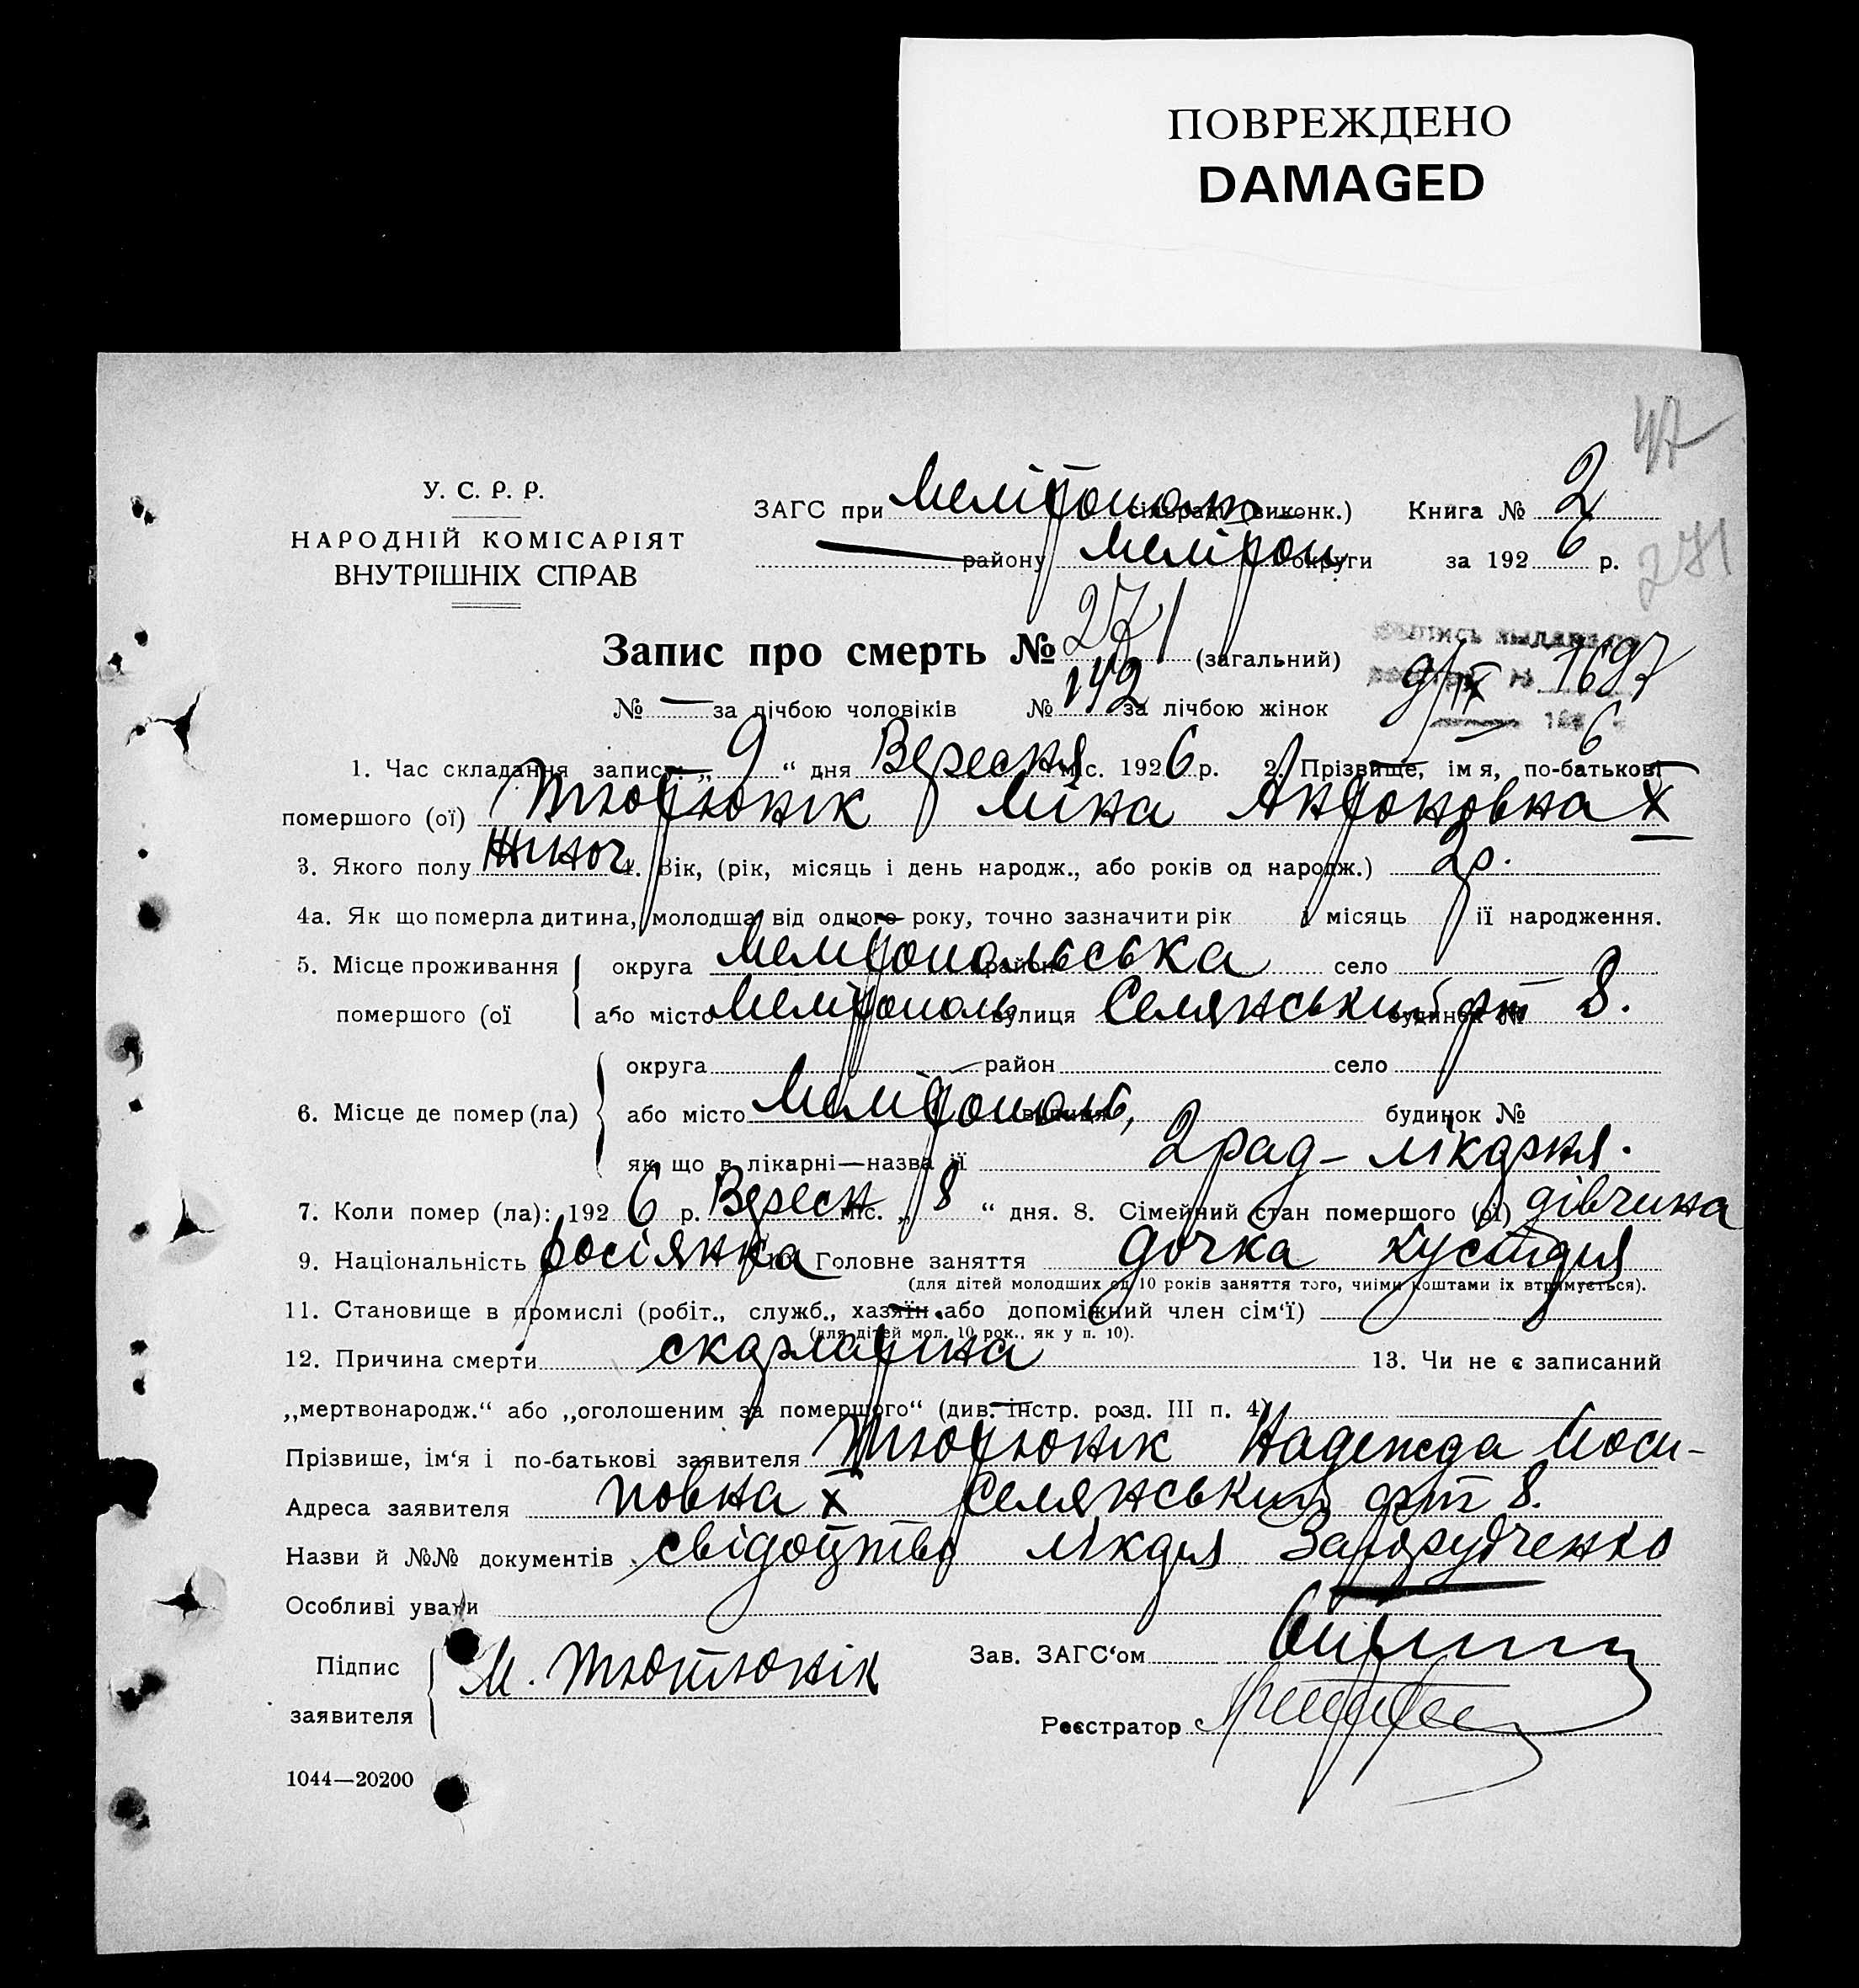 ПОВРЕЖДЕНО
DAMAGED
47
У. С. Р. Р.
НАРОДНІЙ КОМІСАРІЯТ
ВНУТРІШНІХ СПРАВ
ЗАГС при Мелітопол сільраді (виконк.) Книга № 2
— району Меліtоп округи за 1926 р.
271
Запис про смерть № 271 (загальний)
№ — за лічбою чоловіків № 142 за лічбою жінок
9/IX 1697
6
1. Час складання запису: „ 9 “ дня Вересня міс. 1926 р. 2. Прізвище, імя, по-батькові
помершого (ої) Тютюнік Ніна Антоновна X
3. Якого полу жиноч 4. Вік, (рік, місяць і день народж., або років од народж.) 2р.
4а. Як що померла дитина, молодша від одного року, точно зазначити рік і місяць її народження.
5. Місце проживання округа Мелітопольська район село
помершого (ої або місто Мелітополь вулиця Селянський будинок № 8.
округа район село
6. Місце де помер (ла) або місто Мелітополь, вулиця будинок №
як що в лікарні—назва її 2 рад- лікарня.
7. Коли помер (ла): 1926 р. Вересн міс. „ 8 “ дня. 8. Сімейний стан помершого (ої) дівчина
9. Національність росіянка 10. Головне заняття дочка кустаря
(для дітей молодших од 10 років заняття того, чиїми коштами їх втримується).
11. Становище в промислі (робіт., служб., хазяїн або допоміжний член сім‘ї)
(для дітей мол. 10 рок., як у п. 10).
12. Причина смерти скарлатина 13. Чи не є записаний
„мертвонародж.“ або „оголошеним за помершого“ (див. інстр. розд. III п. 4)
Прізвише, ім‘я і по-батькові заявителя Тютюнік Надежда Йоси-
Адреса заявителя повна X Селянський 8.
Назви й №№ документів свідоцтво лікаря
Особливі уваги
Підпис
заявителя
М. Тютюнік
Зав. ЗАГС‘ом
Реєстратор
1044—20200